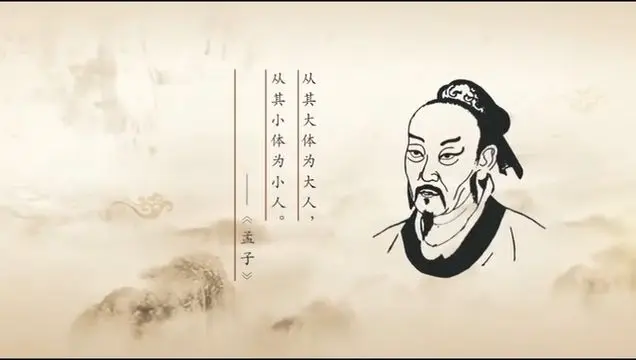 从其大体为大人，
从其小体为小人。
——《孟子》